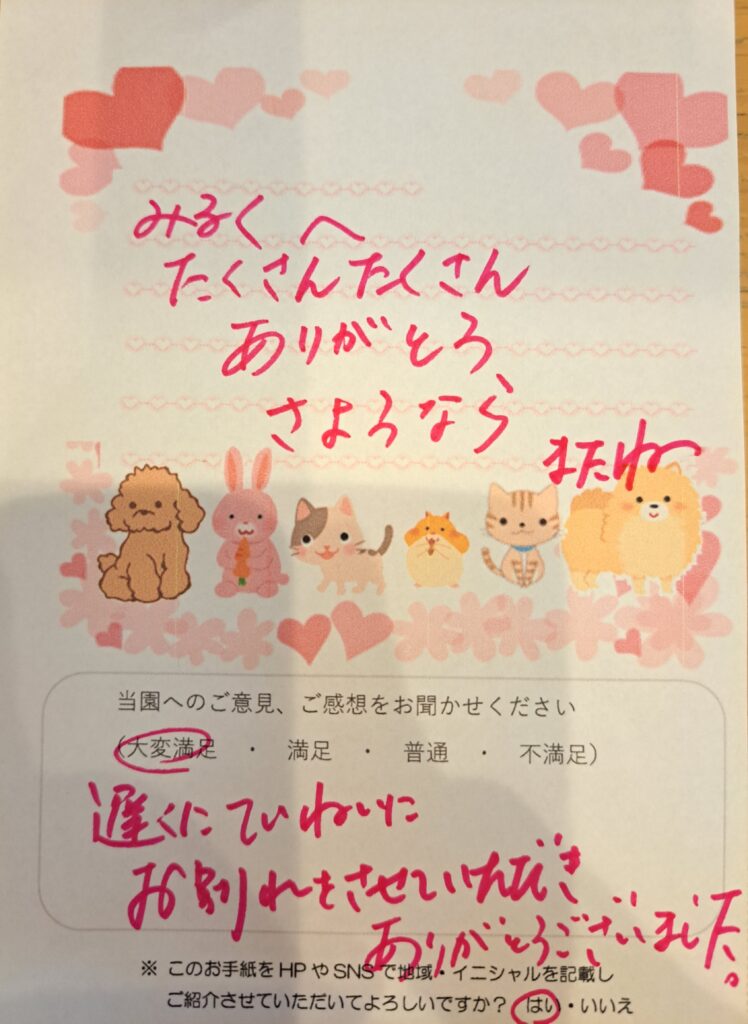 みるくへ
たくさんたくさん
ありがとう
さようなら
またねー
当園へのご意見、ご感想をお聞かせください
(大変満足 ・ 満足 ・ 普通 ・ 不満足)
遅くにていねいに
お別れをさせていただき
ありがとうございました。
※ このお手紙をHPやSNSで地域・イニシャルを記載し
ご紹介させていただいてよろしいですか? はい・いいえ